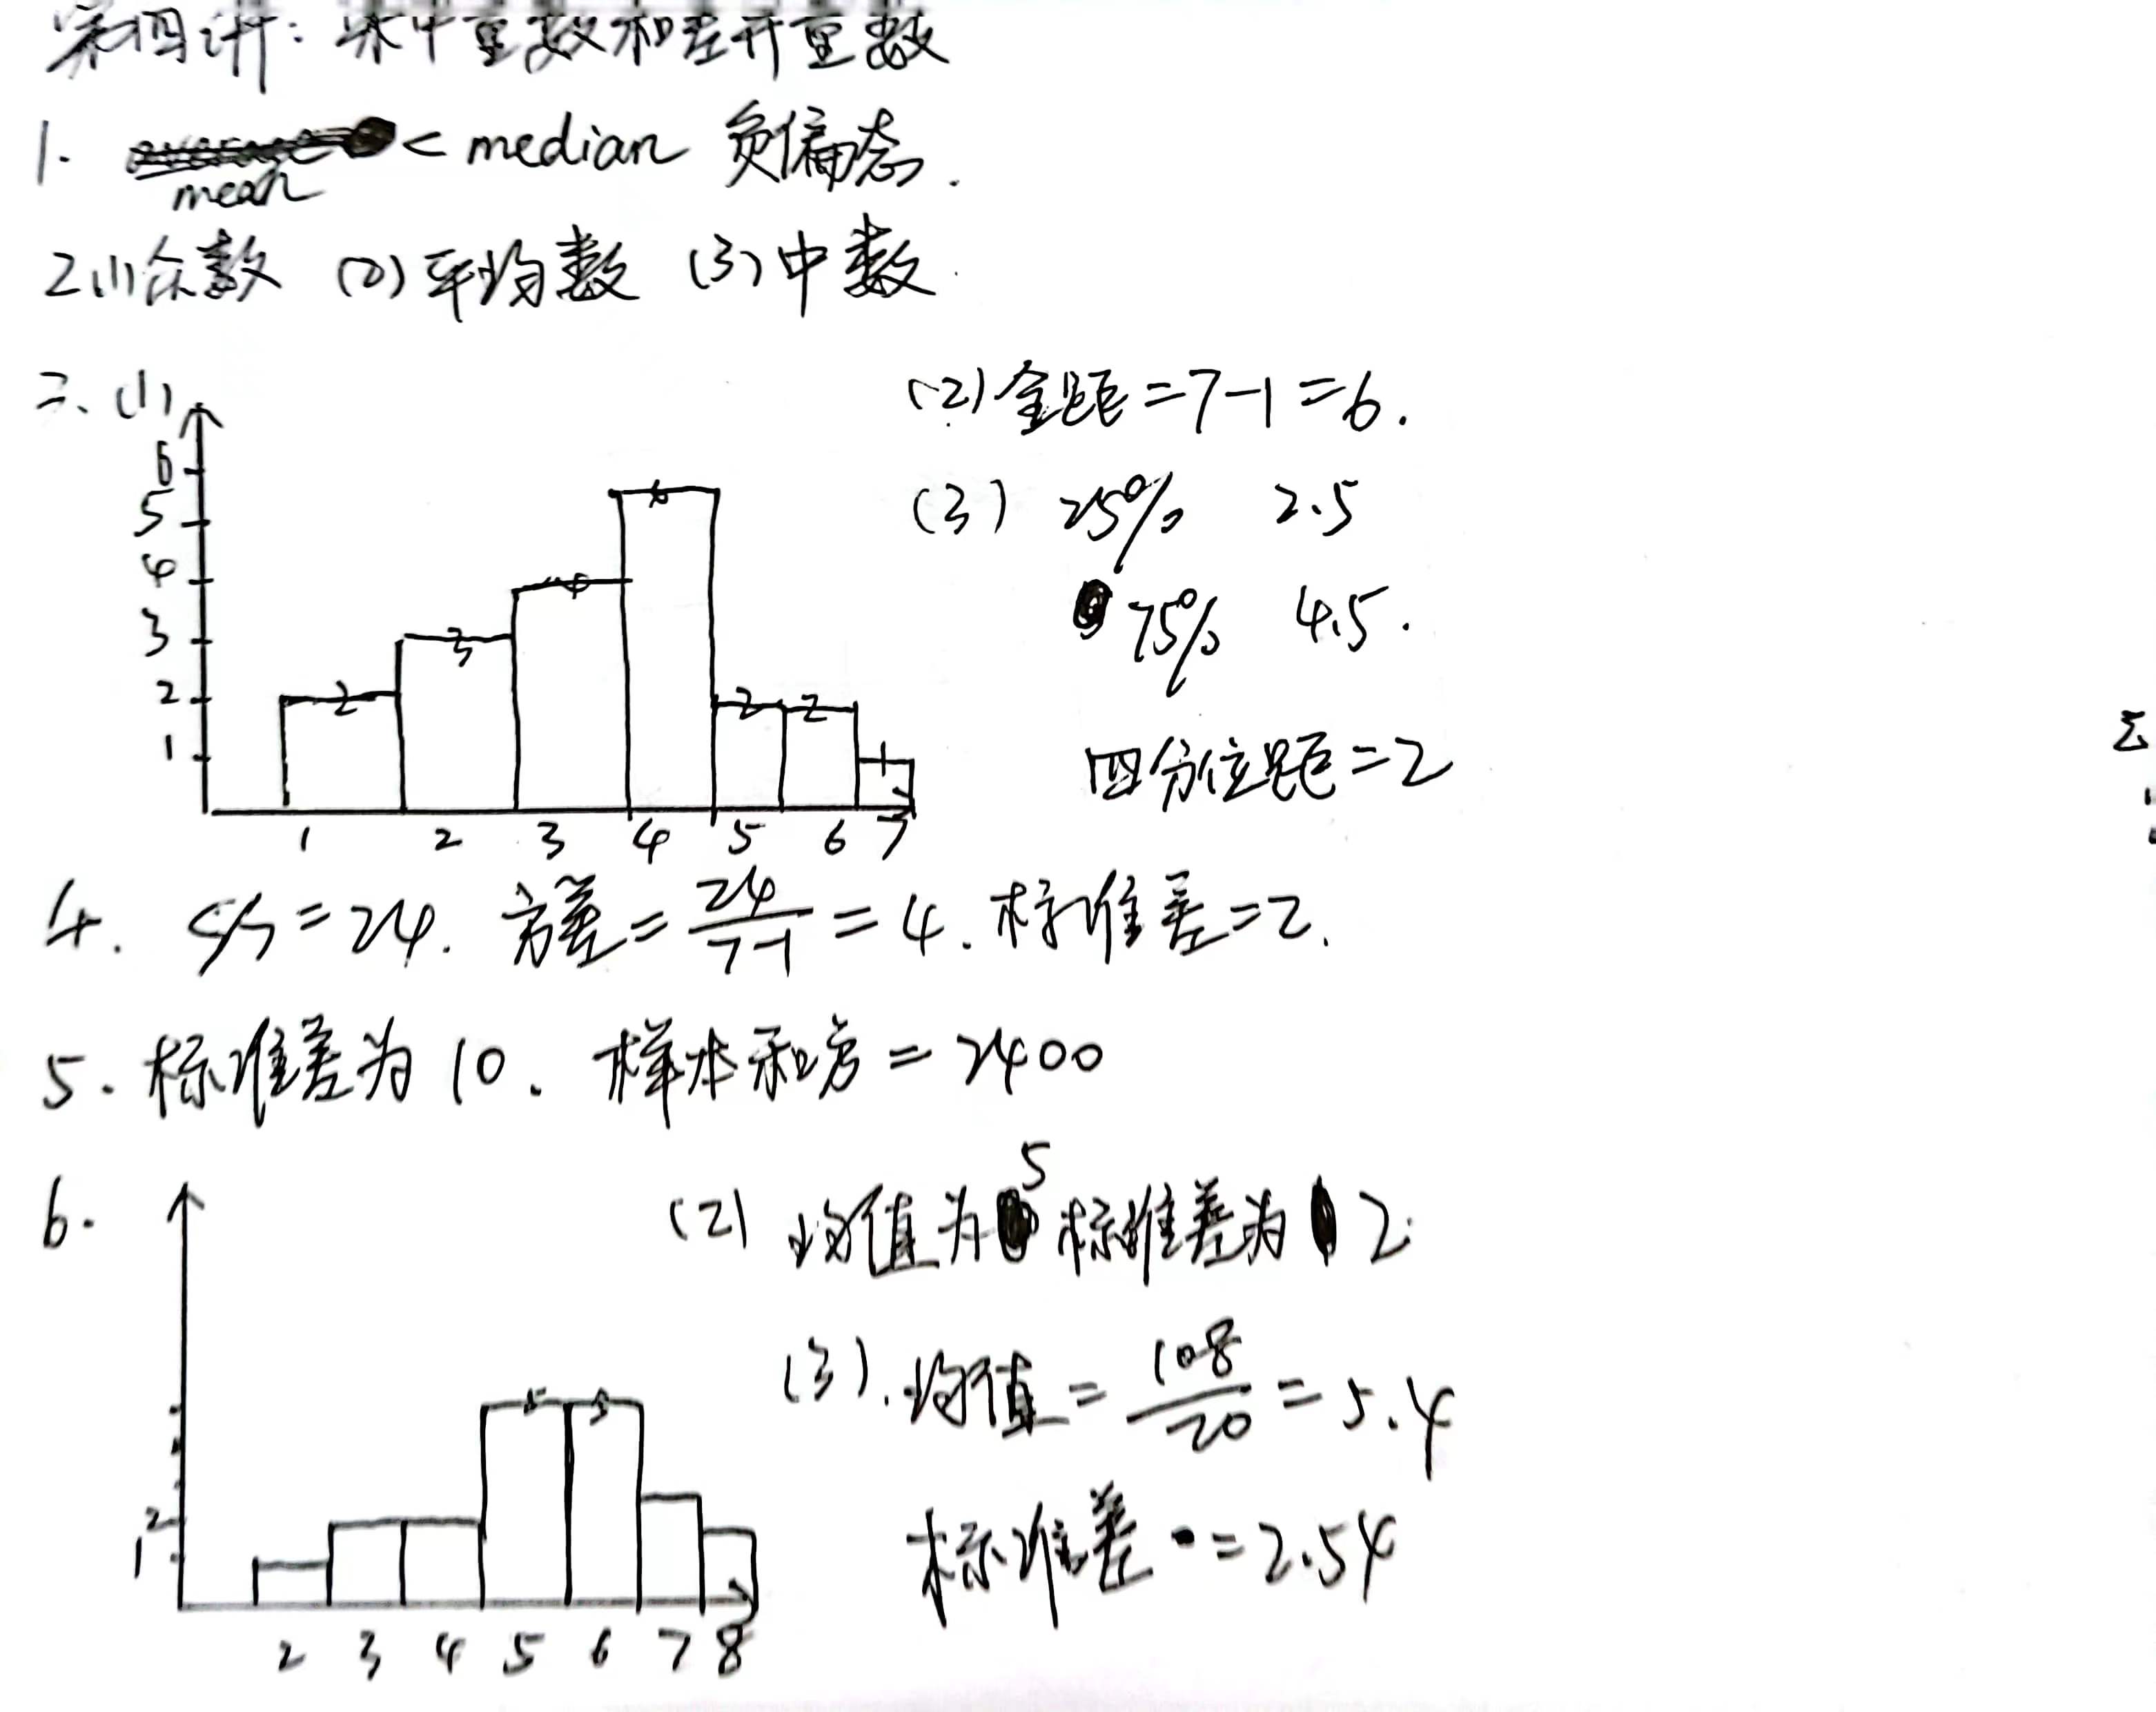 第四讲：集中量数和差异量数
1. mean < median 负偏态.
2.(1)众数 (2)平均数 (3)中数.
二. (1)
6
5
4
3
2
1
6
4
3
2
2
2
1
1 2 3 4 5 6 7
(2) 全距=7-1=6.
(3) 25% 2.5
75% 4.5.
四分位距=2
4. SS=24. 方差=24/7-1=4. 标准差=2.
5. 标准差为10. 样本和方=2400
6.
2
1
5 5
2 3 4 5 6 7 8
(2) 均值为5 标准差为2.
(3). 均值=108/20=5.4
标准差=2.54